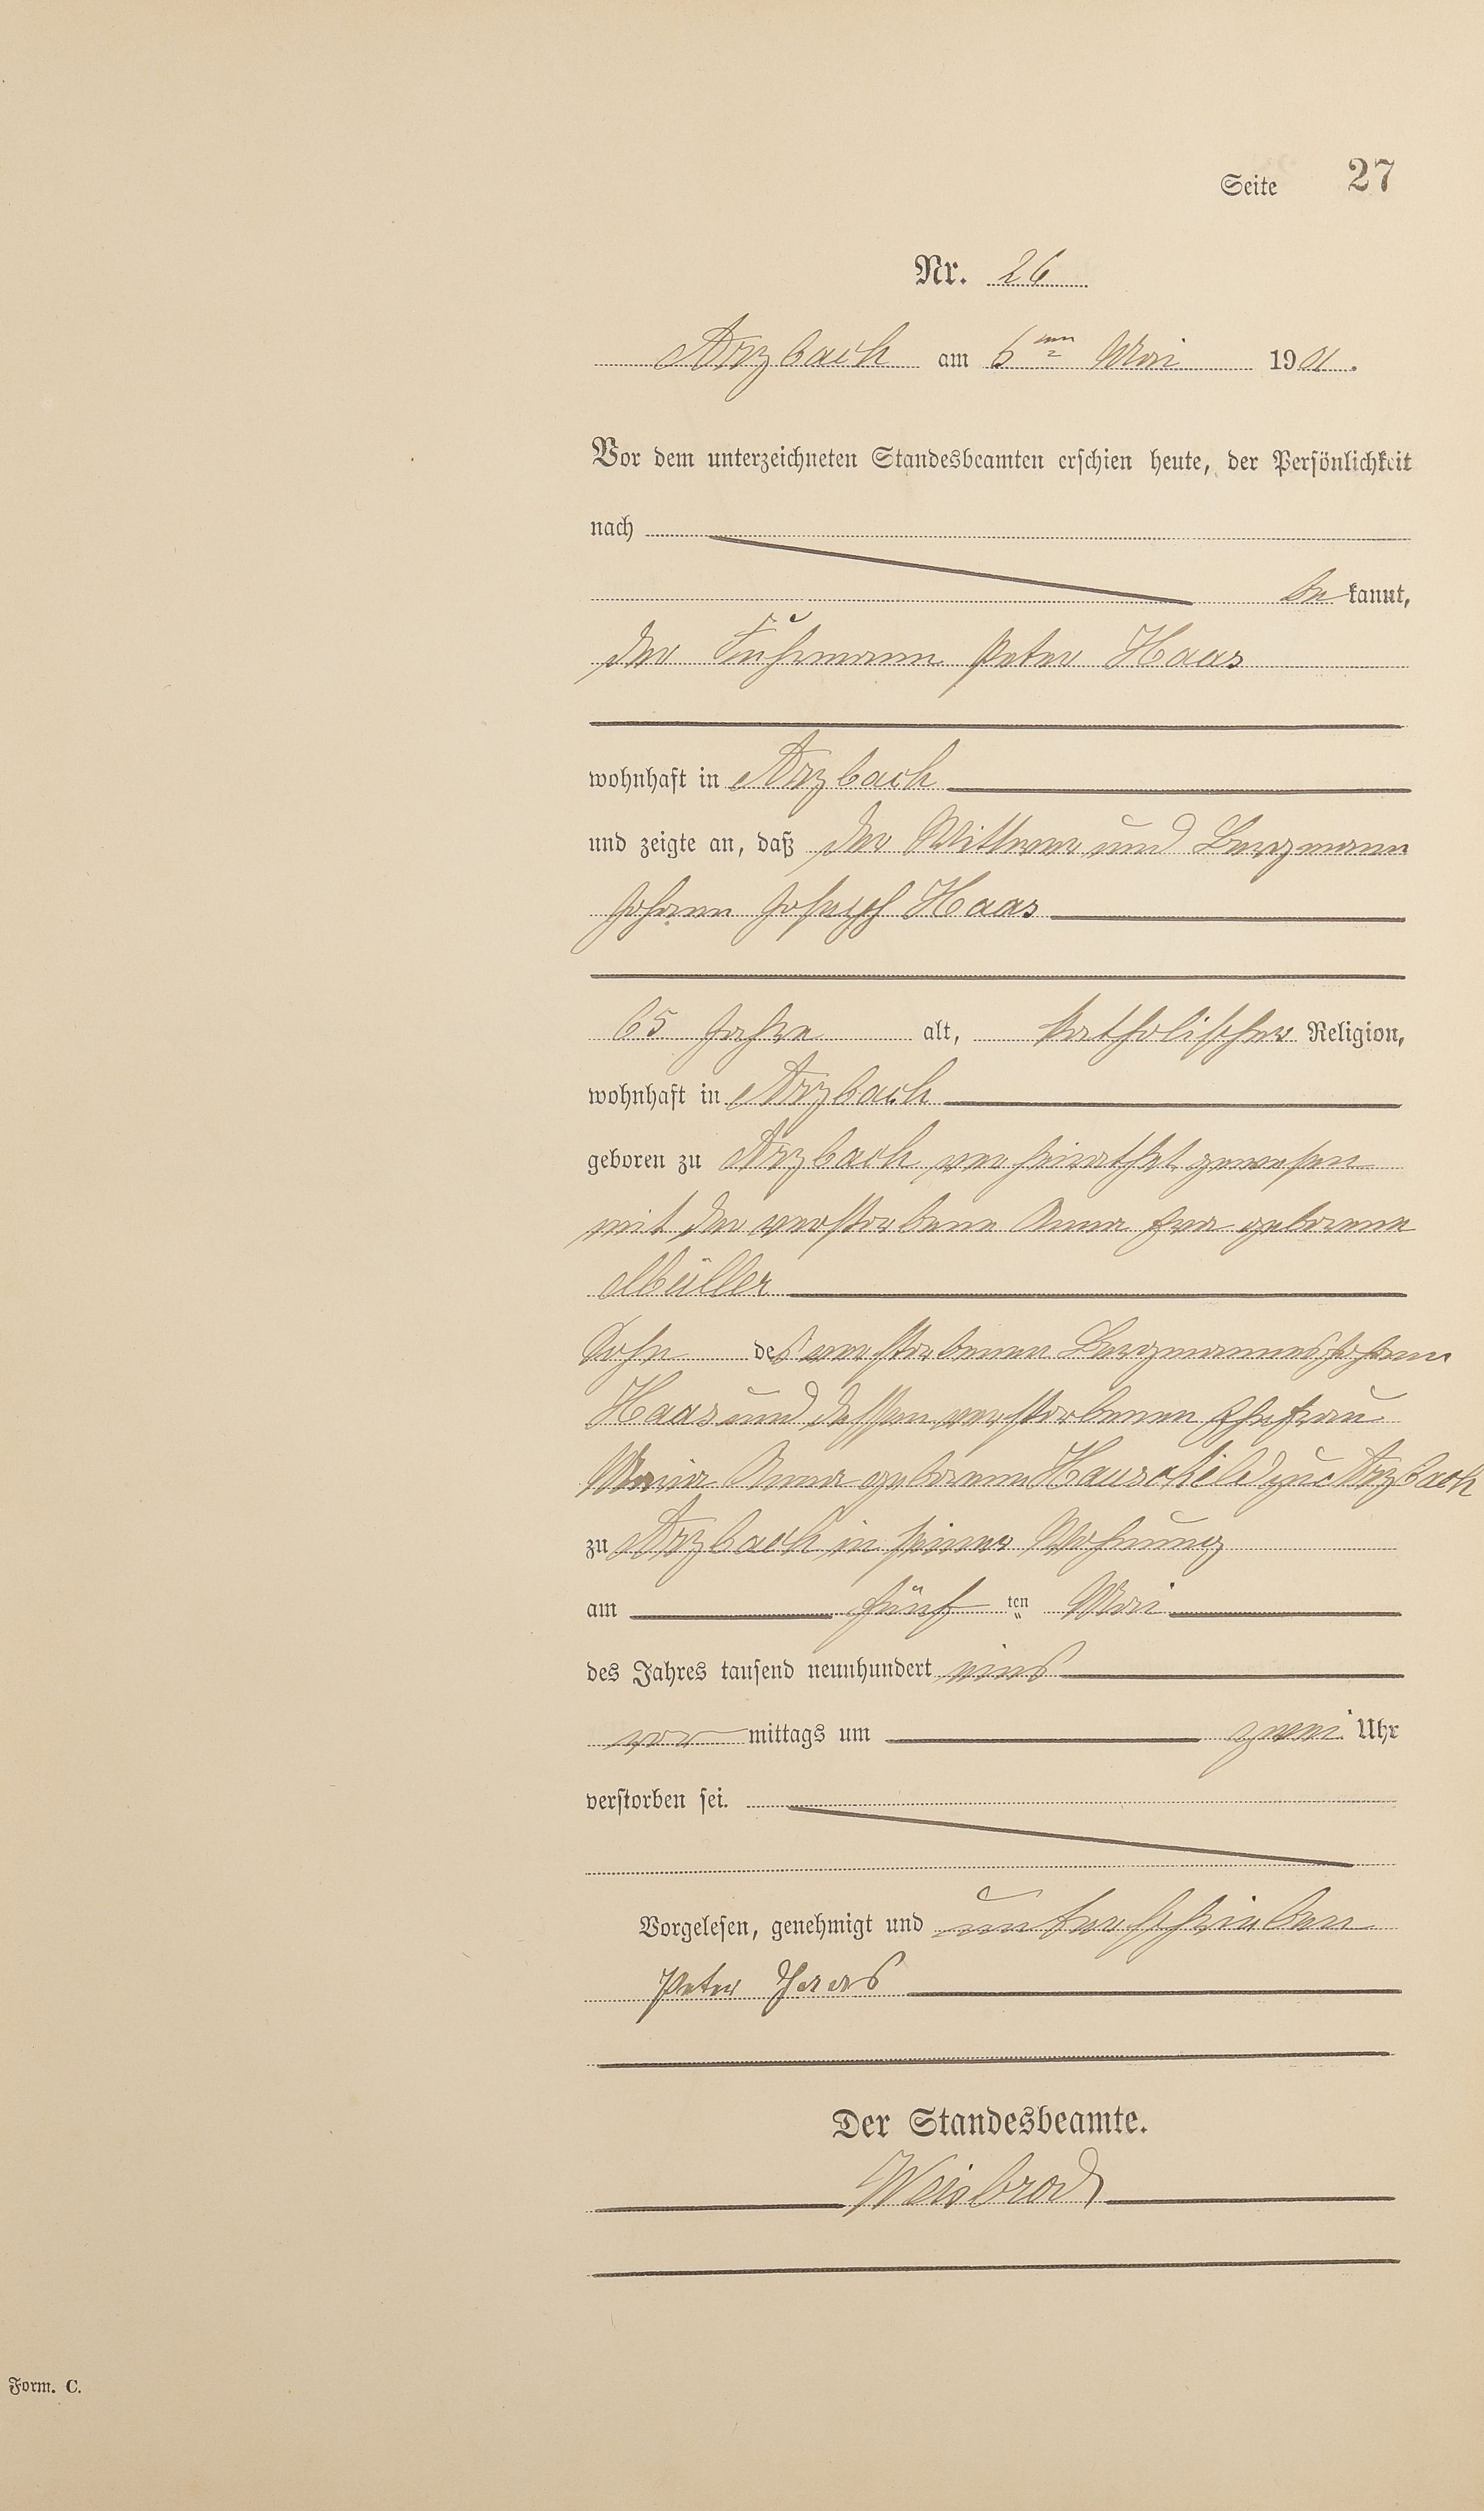 Seite 27
Nr. 26
Arzbach am 6ten Mai 1901.
Vor dem unterzeichneten Standesbeamten erschien heute, der Persönlichkeit
nach
be kannt,
der Fuhrmann Peter Haas
wohnhaft in Arzbach
und zeigte an, daß der Wittwer und Bergmann
Johann Joseph Haas
65 Jahre alt, katholischer Religion,
wohnhaft in Arzbach
geboren zu Arzbach verheirathet gewesen
mit der verstorbene Anna Eva geborene
Müller
Sohn des verstorbenen Bergmannes Johann
Haas und dessen verstorbenen Ehefrau
Maria Anna geborene zu Arzbach
zu Arzbach in seiner Wohnung
am fünf ten Mai
des Jahres tausend neunhundert eins
vor mittags um zwei Uhr
verstorben sei.
Vorgelesen, genehmigt und unterschrieben
Peter Haas
Der Standesbeamte.
Weisbrod
Form. C.